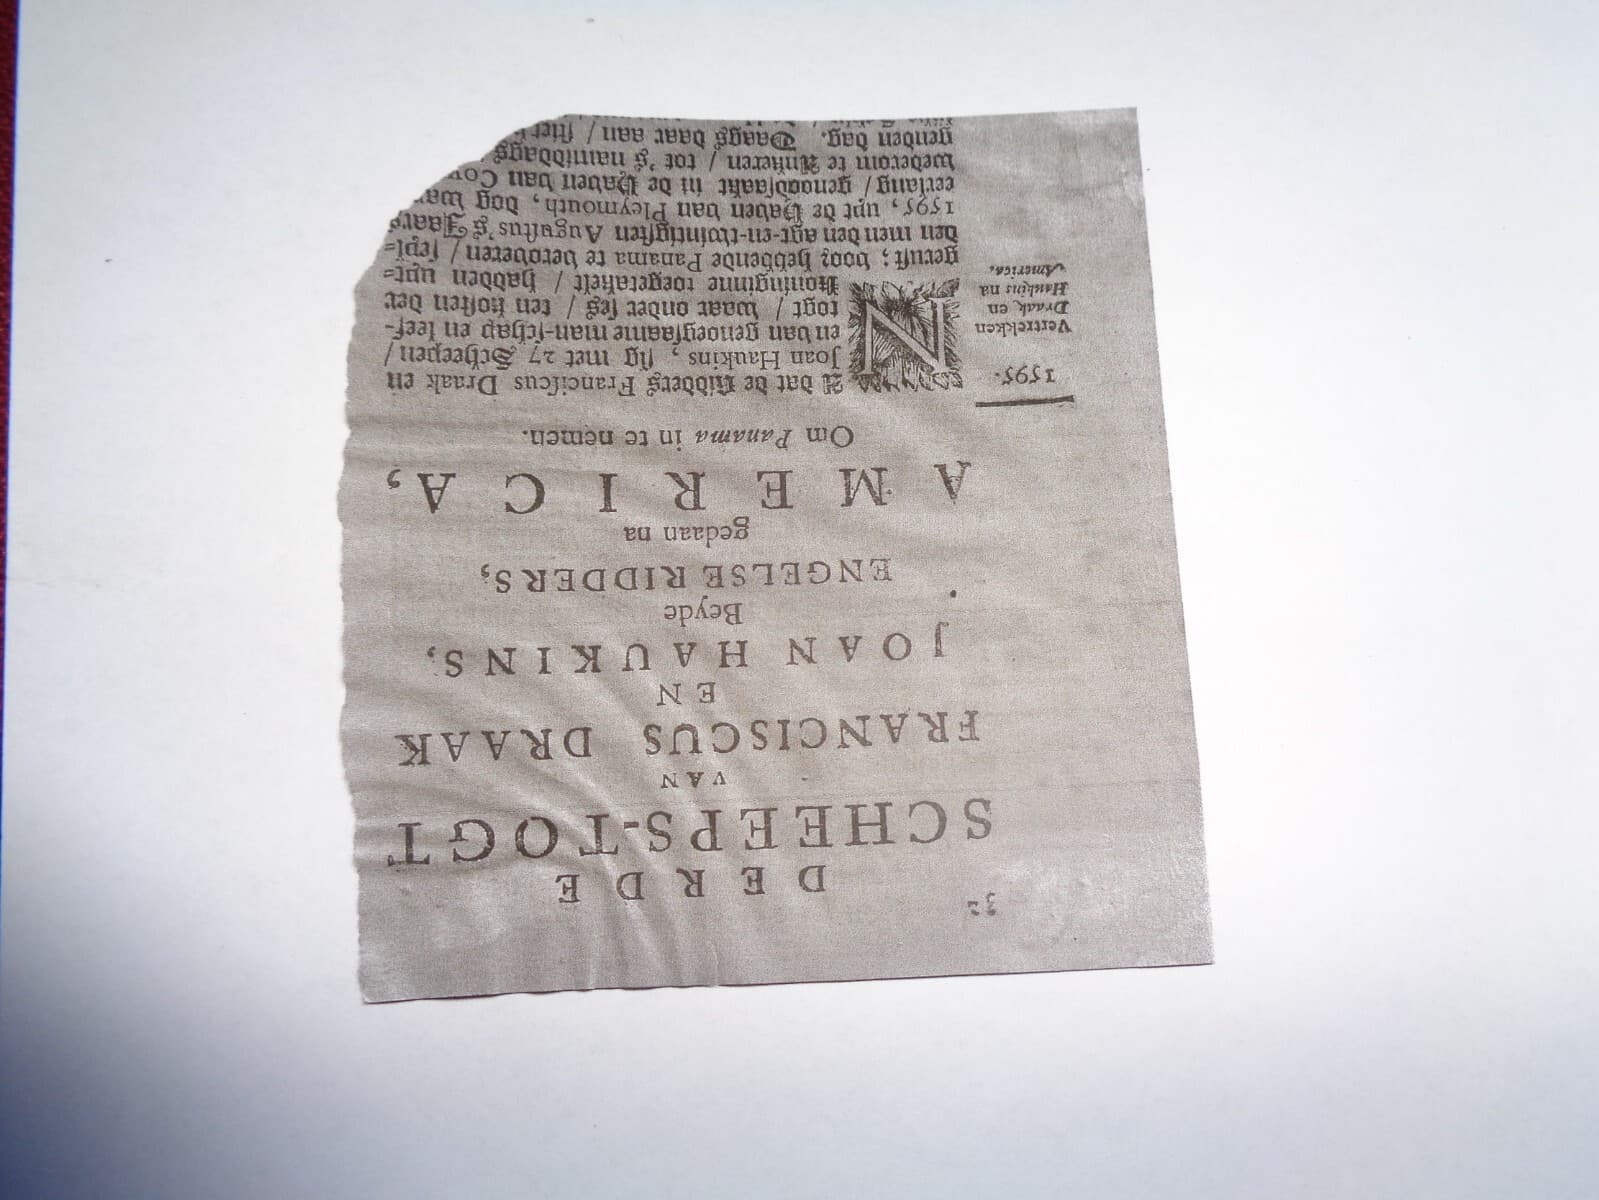 32
DERDE
SCHEEPS-TOGT
VAN
FRANCISCUS DRAAK
EN
JOAN HAUKINS,
Beyde
ENGELSE RIDDERS,
gedaan na
AMERICA,
Om Panama in te nemen.
1595.
Vertrekken
Draak en
Haukins na
America.
NA dat de Ridders Franciſcus Draak en
Joan Haukins, ſig met 27 Scheepen /
en van genoegſaame man-ſchap en leef-
togt / waar onder ſes / ten koſten der
Koninginne toegetakelt / hadden uyt=
geruſt; voor hebbende Panama te veroveren / ſeyl=
den men den agt-en-twintigſten Auguſtus 's Jaars
1595, uyt de Haven van Pleymouth, dog
eerlang / genoodſaakt in de Haven van
wederom te Ankeren / tot 's namiddags
genden dag. Daags daar aan /